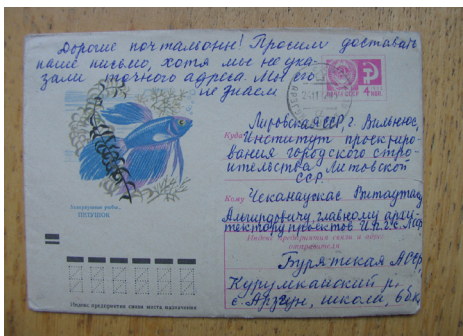 Дорогие почтальоны! Просим доставить
наше письмо, хотя мы не ука-
зали точного адреса. Мы его
не знаем
4 коп
Куда
Литовская ССР, г. Вильнюс,
Институт проектиро-
вания городского стро-
ительства Литовской
ССР.
Кому
Чеканаускас Витаутас
главному архи-
тектору проектов
Индекс предприятия связи и адрес
отправителя
Бурятская АССР,
Курумканский р.
с. Арзгун, школа, 6 бкл,
Аквариумные рыбы.
ПЕТУШОК
Индекс предприятия связи места назначения